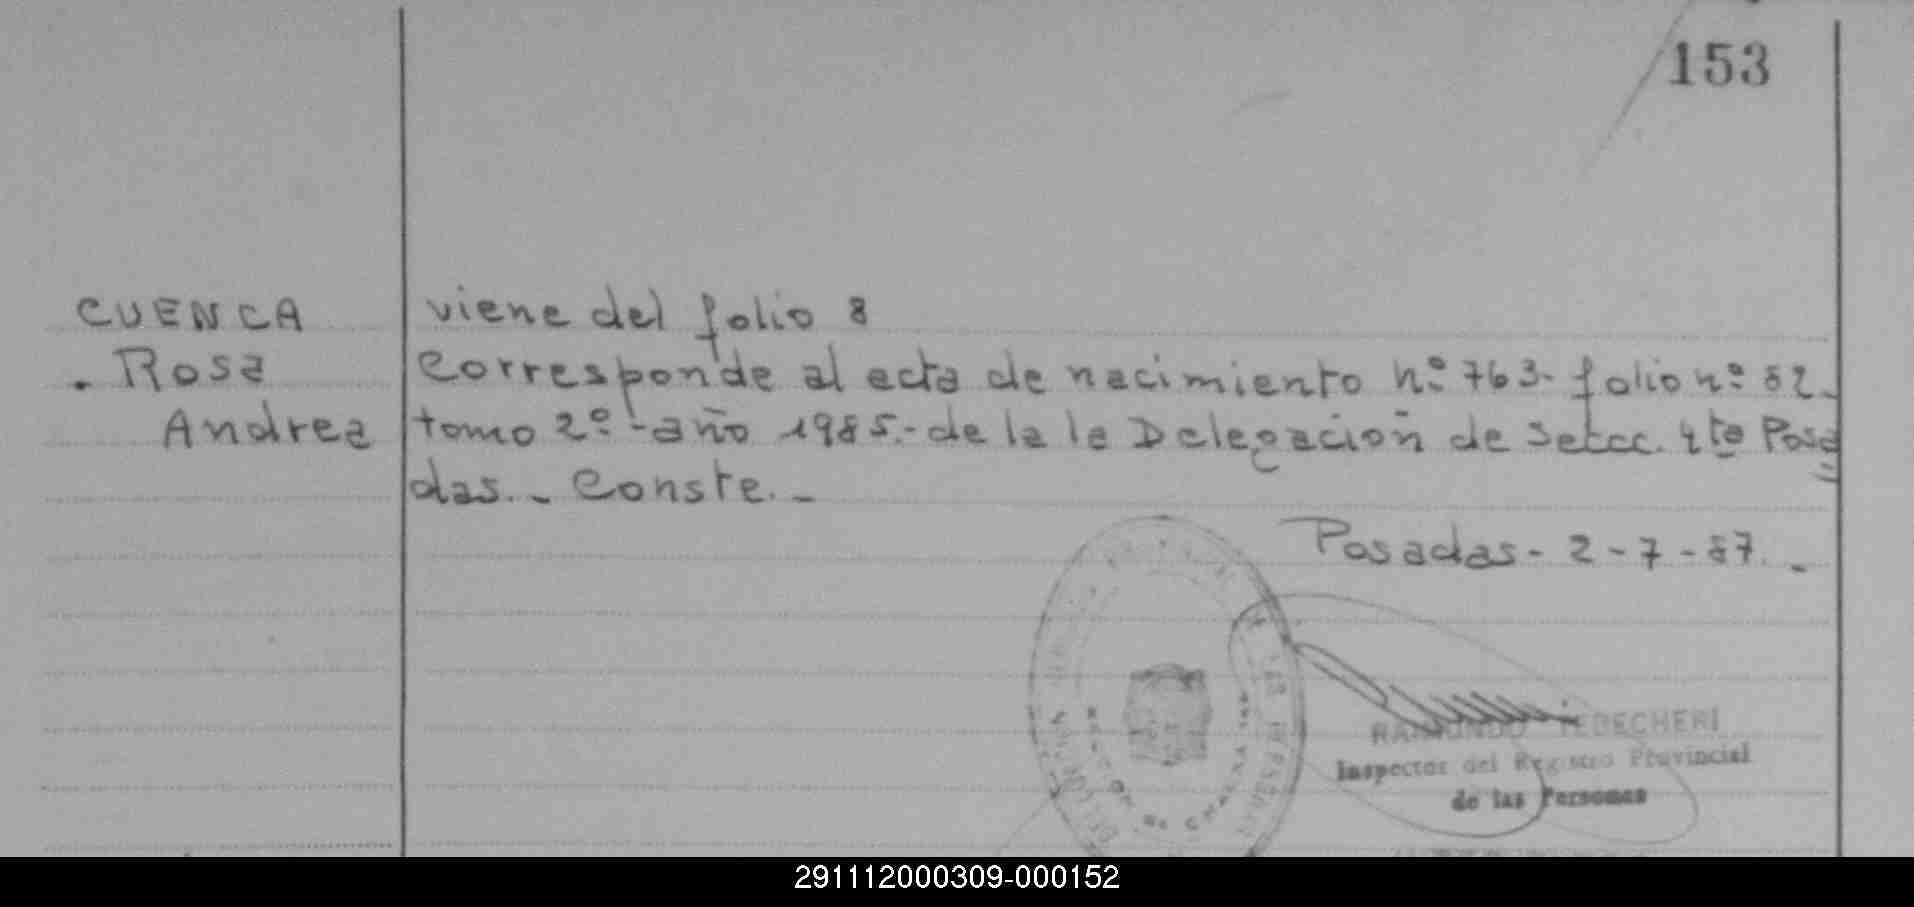 153
CUENCA
. Rosa
Andrea
viene del folio 8
Corresponde al acta de nacimiento nº 763- folio nº 82.
tomo 2º - año 1985.- de la la Delegación de Secc. 4ta Posa
das.- Conste.-
Posadas - 2 - 7 - 87.-
RAIMUNDO TEDECHERI
Inspector del Registro Provincial
de las Personas
291112000309-000152